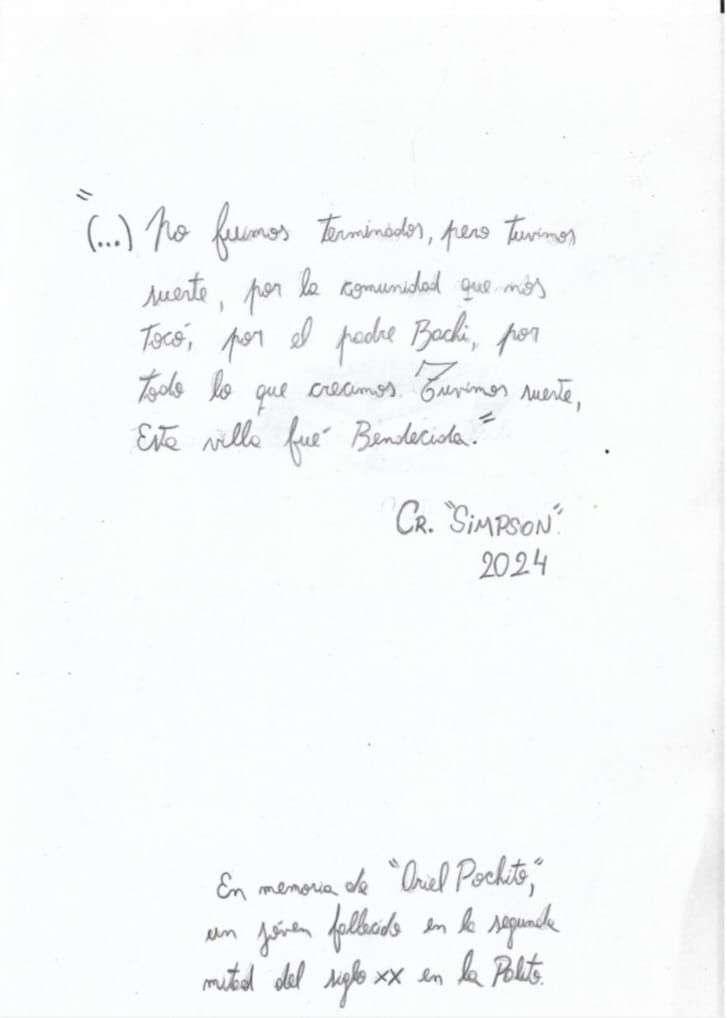 "(...) No fuimos terminados, pero tuvimos
suerte, por la comunidad que nos
tocó, por el padre Bachi, por
todo lo que crecimos. Tuvimos suerte,
Esta villa fué Bendecida."
CR. "SiMPSON".
2024
En memoria de "Oriel Pochito",
un jóven fallecido en la segunda
mitad del siglo XX en la Palito.